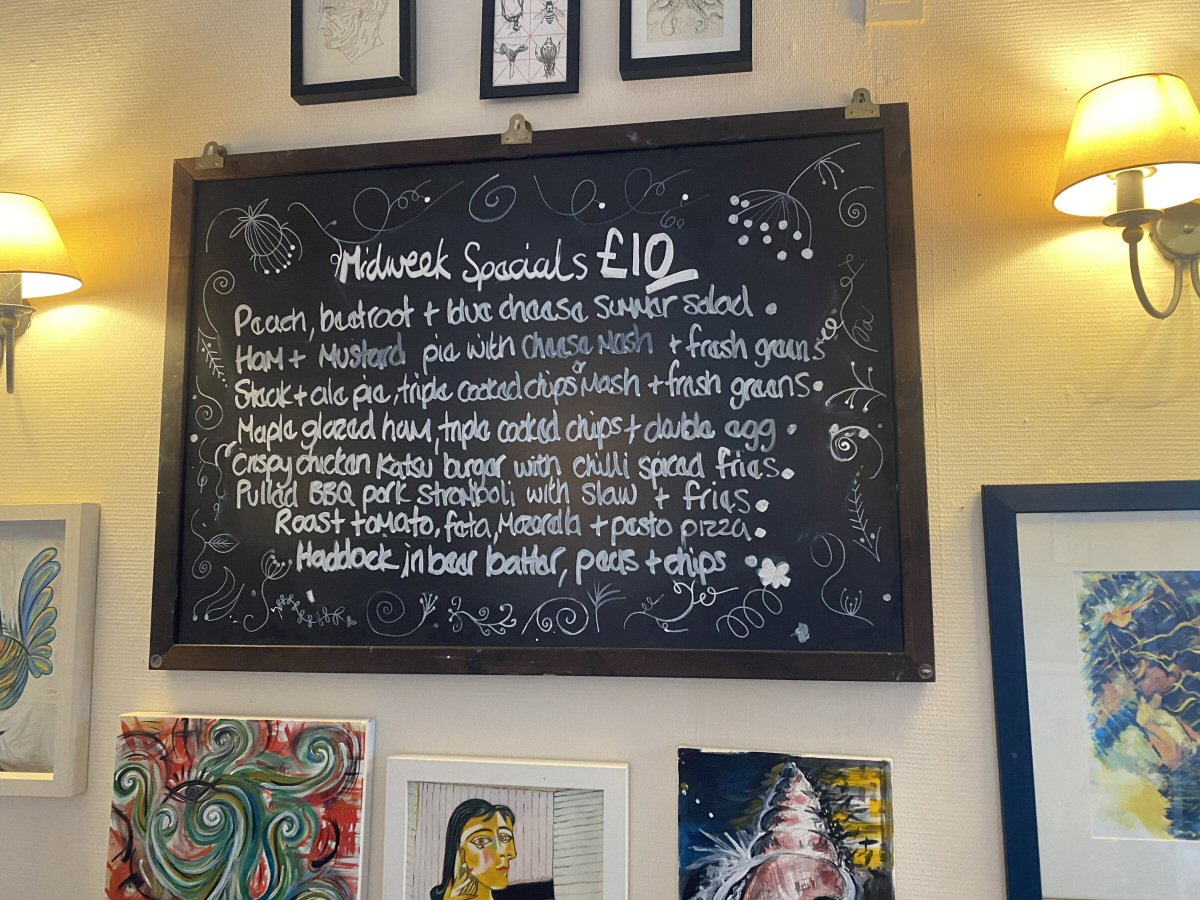 Midweek Specials £10
Peach, beetroot + blue cheese summer salad
Ham + Mustard pie with cheese mash + fresh greens
Steak + ale pie, triple cooked chips or Mash + fresh greens
Maple glazed ham, triple cooked chips + double egg
Crispy chicken Katsu burger with chilli spiced fries
Pulled BBQ pork stromboli with slaw + fries
Roast tomato, feta, Mozarella + pesto pizza
Haddock in beer batter, peas + chips